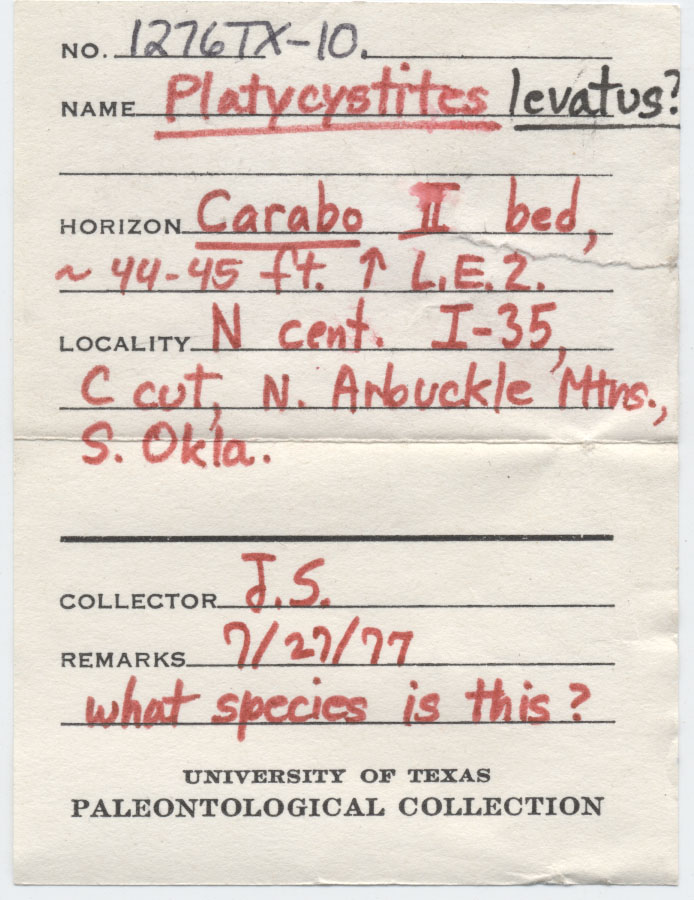 NO. 1276TX-10.
NAME Platycystites levatus?
HORIZON Carabo II bed,
~ 44-45 ft. ↑ L.E.2.
LOCALITY N cent. I-35,
C cut, N. Arbuckle Mtns.,
S. Okla.
COLLECTOR J.S.
REMARKS 7/27/77
what species is this?
UNIVERSITY OF TEXAS
PALEONTOLOGICAL COLLECTION